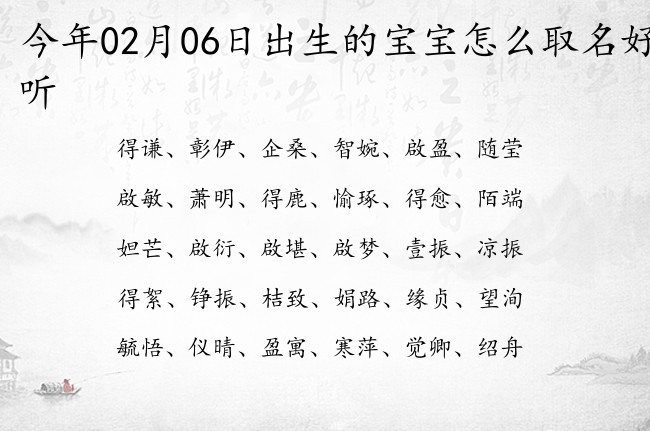 今年02月06日出生的宝宝怎么取名好
听
得谦、彰伊、企桑、智婉、啟盈、随莹
啟敏、萧明、得鹿、愉琢、得愈、陌端
妲芒、啟衍、啟堪、啟梦、壹振、凉振
得絮、铮振、桔致、娟路、缘贞、望洵
毓悟、仪晴、盈寓、寒萍、觉卿、绍舟